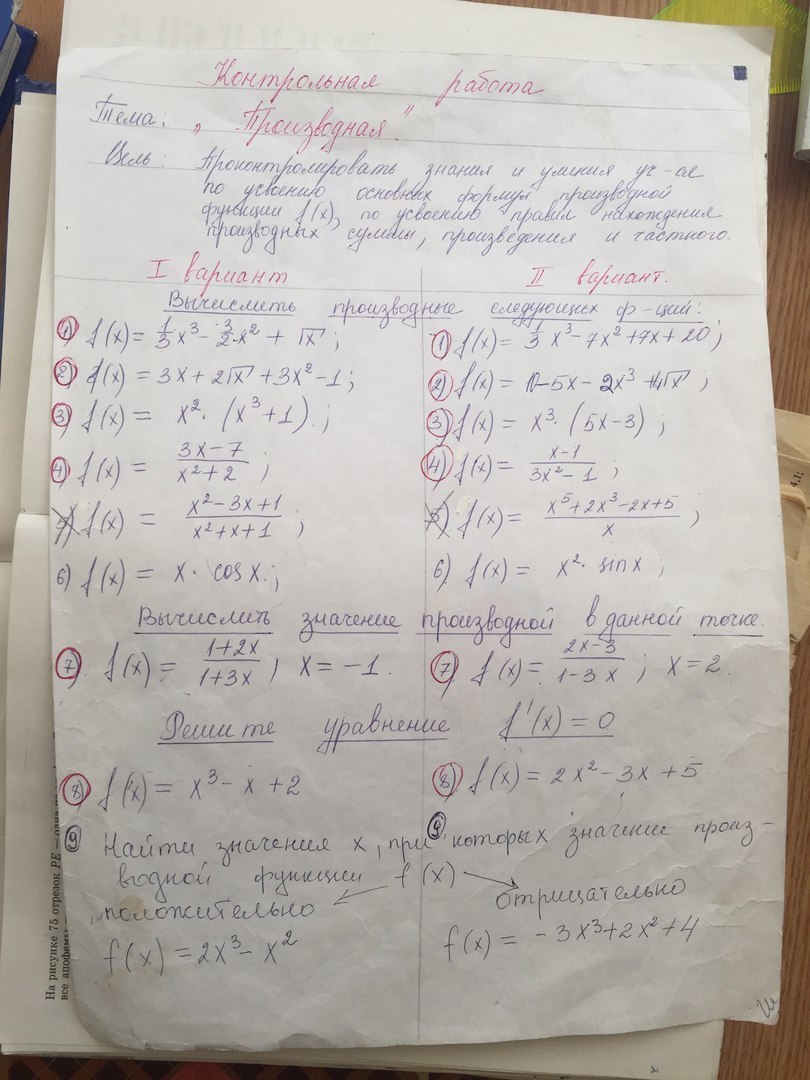 Контрольная работа
Тема: „Производная."
Цель: Проконтролировать знания и умения уч-ся
по усвоению основных формул производной
функции f(x), по усвоению правил нахождения
производных суммы, произведения и частного.
I вариант
II вариант.
Вычислить производные следующих ф-ций:
1) f(x) = 1/3 x³ - 3/2 x² + √x;
1) f(x) = 1/3 x³ - 7x² + 7x + 20;
2) f(x) = 3x + 2√x + 3x² - 1;
2) f(x) = 1 - 5x - 2x³ + 4√x;
3) f(x) = x² · (x³ + 1).;
3) f(x) = x³ · (5x - 3);
4) f(x) = (3x - 7)/(x² + 2);
4) f(x) = (x - 1)/(3x² - 1);
5) f(x) = (x² - 3x + 1)/(x² + x + 1);
5) f(x) = (x⁵ + 2x³ - 2x + 5)/x;
6) f(x) = x · cos x.;
6) f(x) = x² · sin x;
Вычислить значение производной в данной точке.
7) f(x) = (1 + 2x)/(1 + 3x); x = -1.
7) f(x) = (2x - 3)/(1 - 3x); x = 2.
Решите уравнение f'(x) = 0
8) f(x) = x³ - x + 2
8) f(x) = 2x² - 3x + 5
9 Найти значения x, при 9 которых значение произ-
водной функции f(x)
положительно
отрицательно
f(x) = 2x³ - x²
f(x) = -3x³ + 2x² + 4
На рисунке 75 отрезок PE —
все апофемы